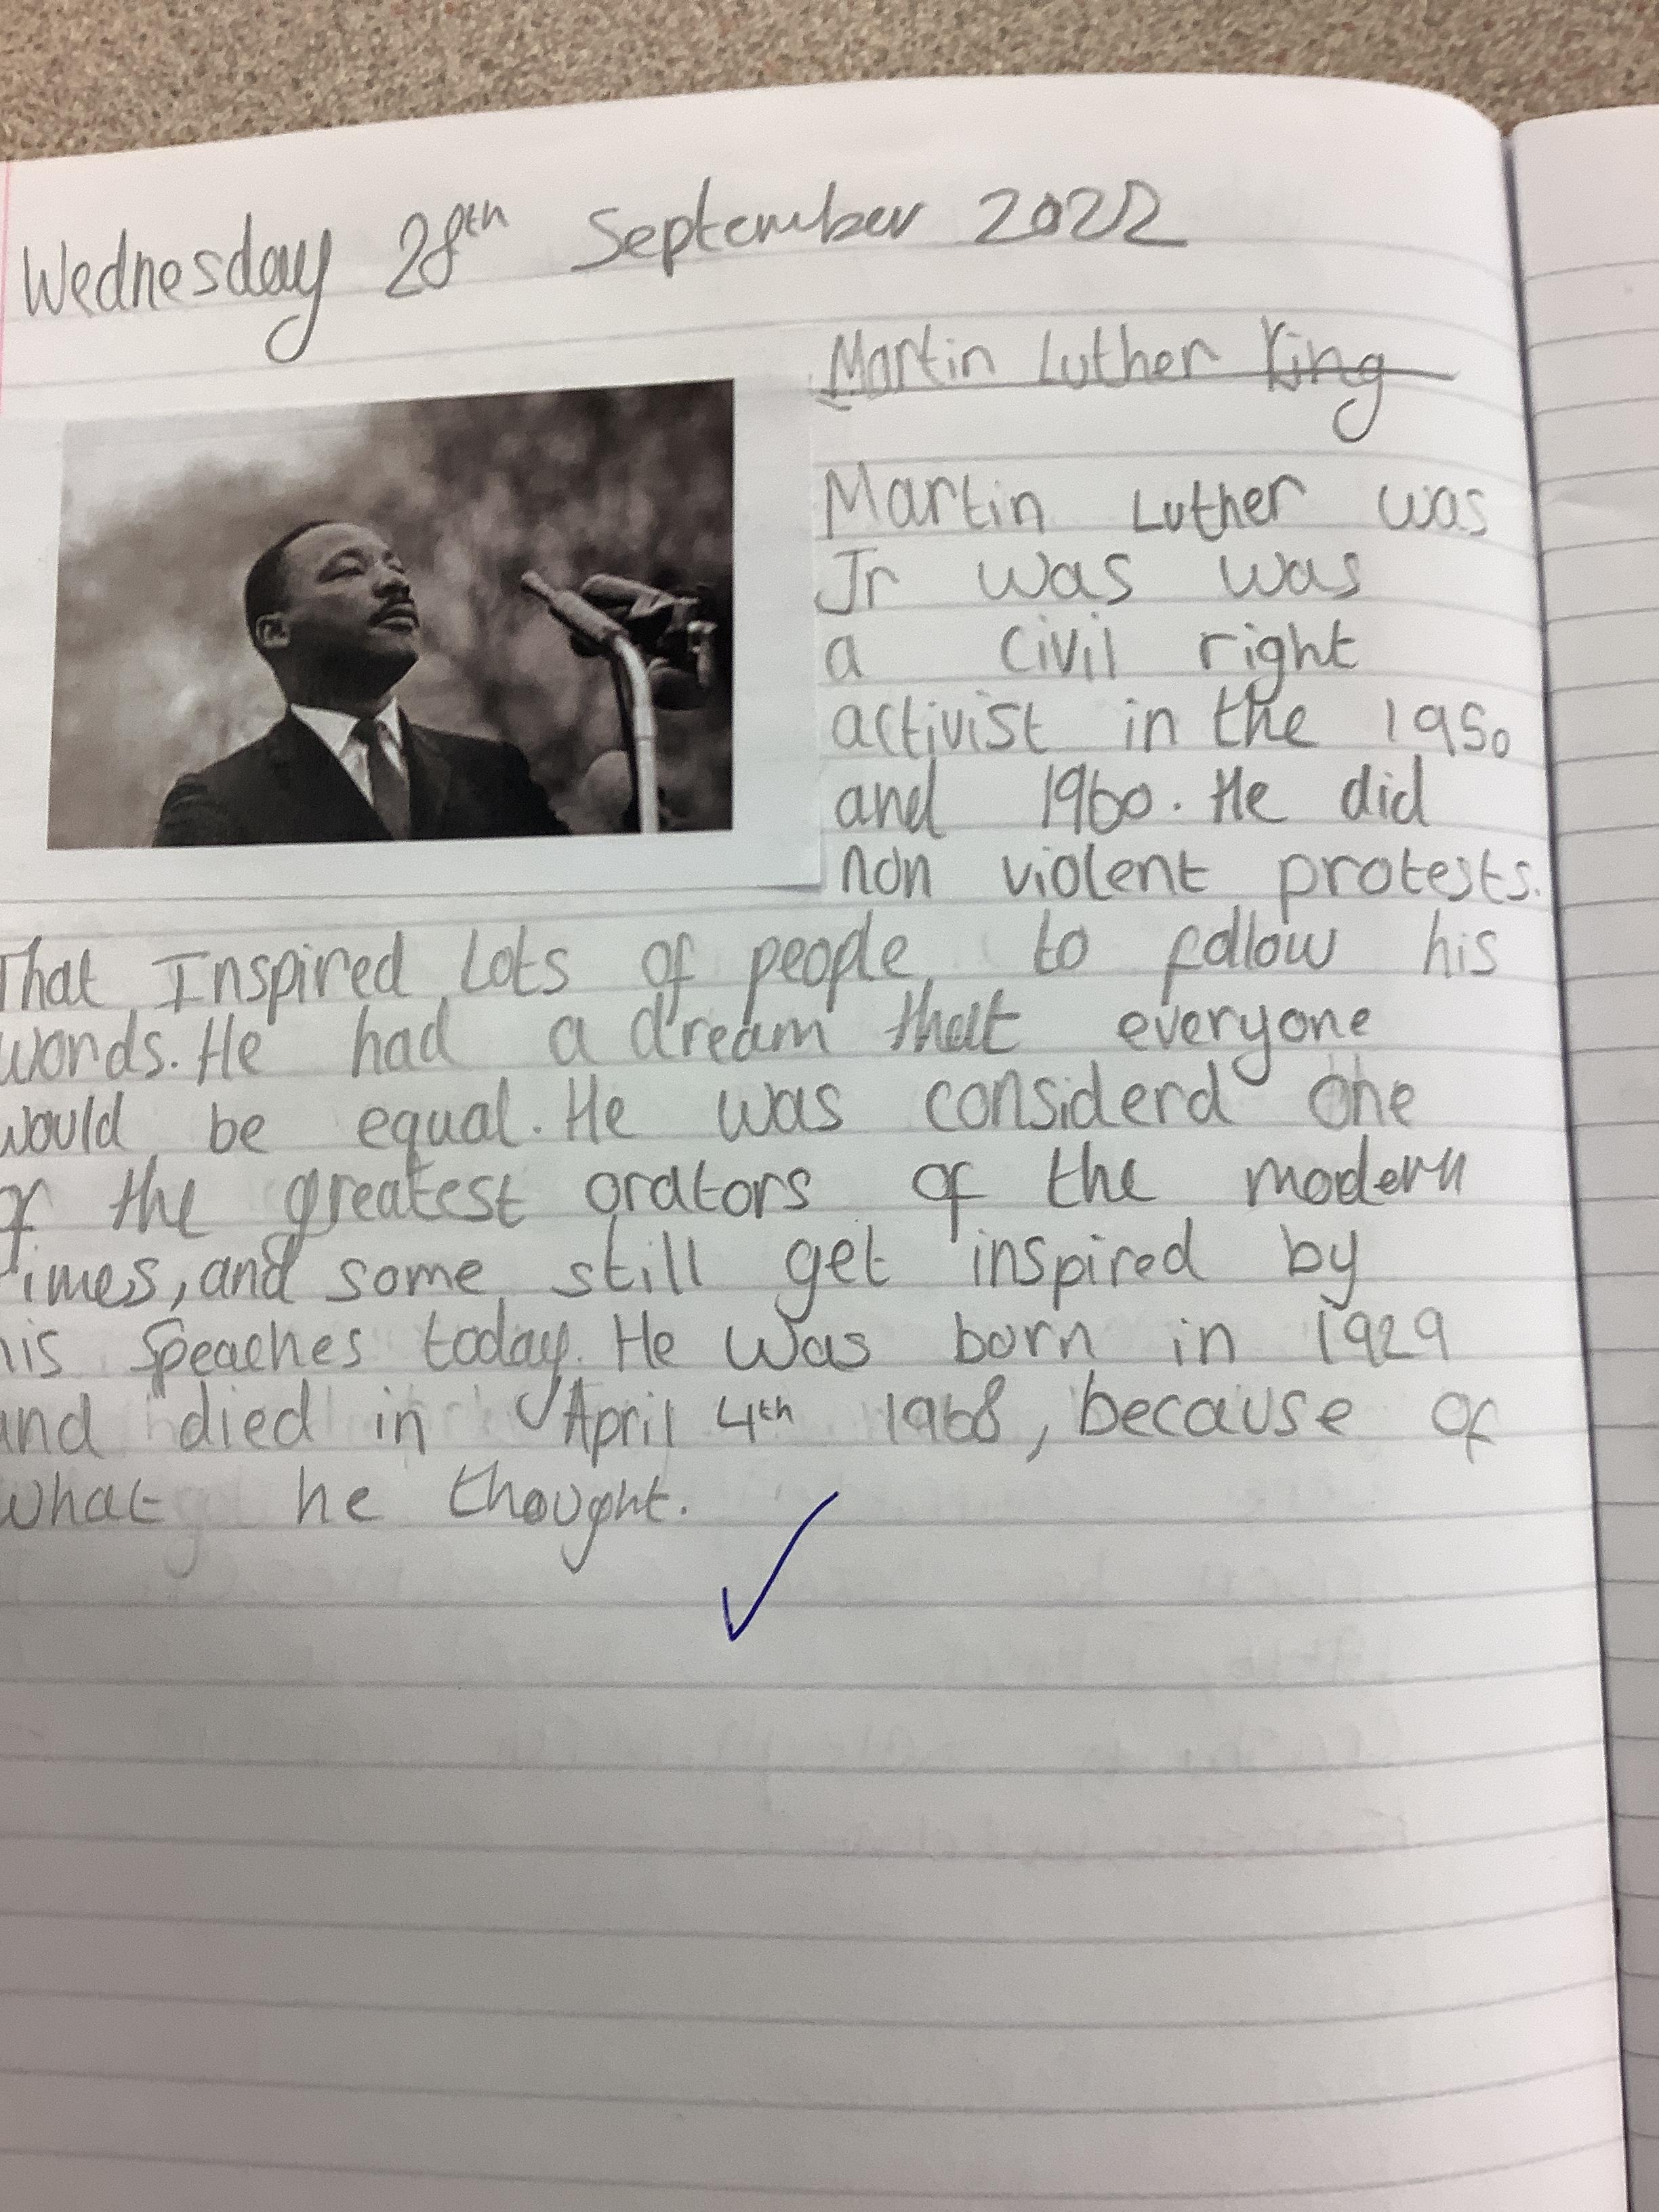 Wednesday 28th September 2022
Martin Luther King
Martin Luther was
Jr was was
a civil right
activist in the 1950
and 1960. He did
non violent protests.
That Inspired Lots of people to follow his
words. He had a dream that everyone
would be equal. He was considerd one
of the greatest orators of the modern
times, and some still get inspired by
his Speaches today. He was born in 1929
and died in April 4th 1968, because of
what he thought.